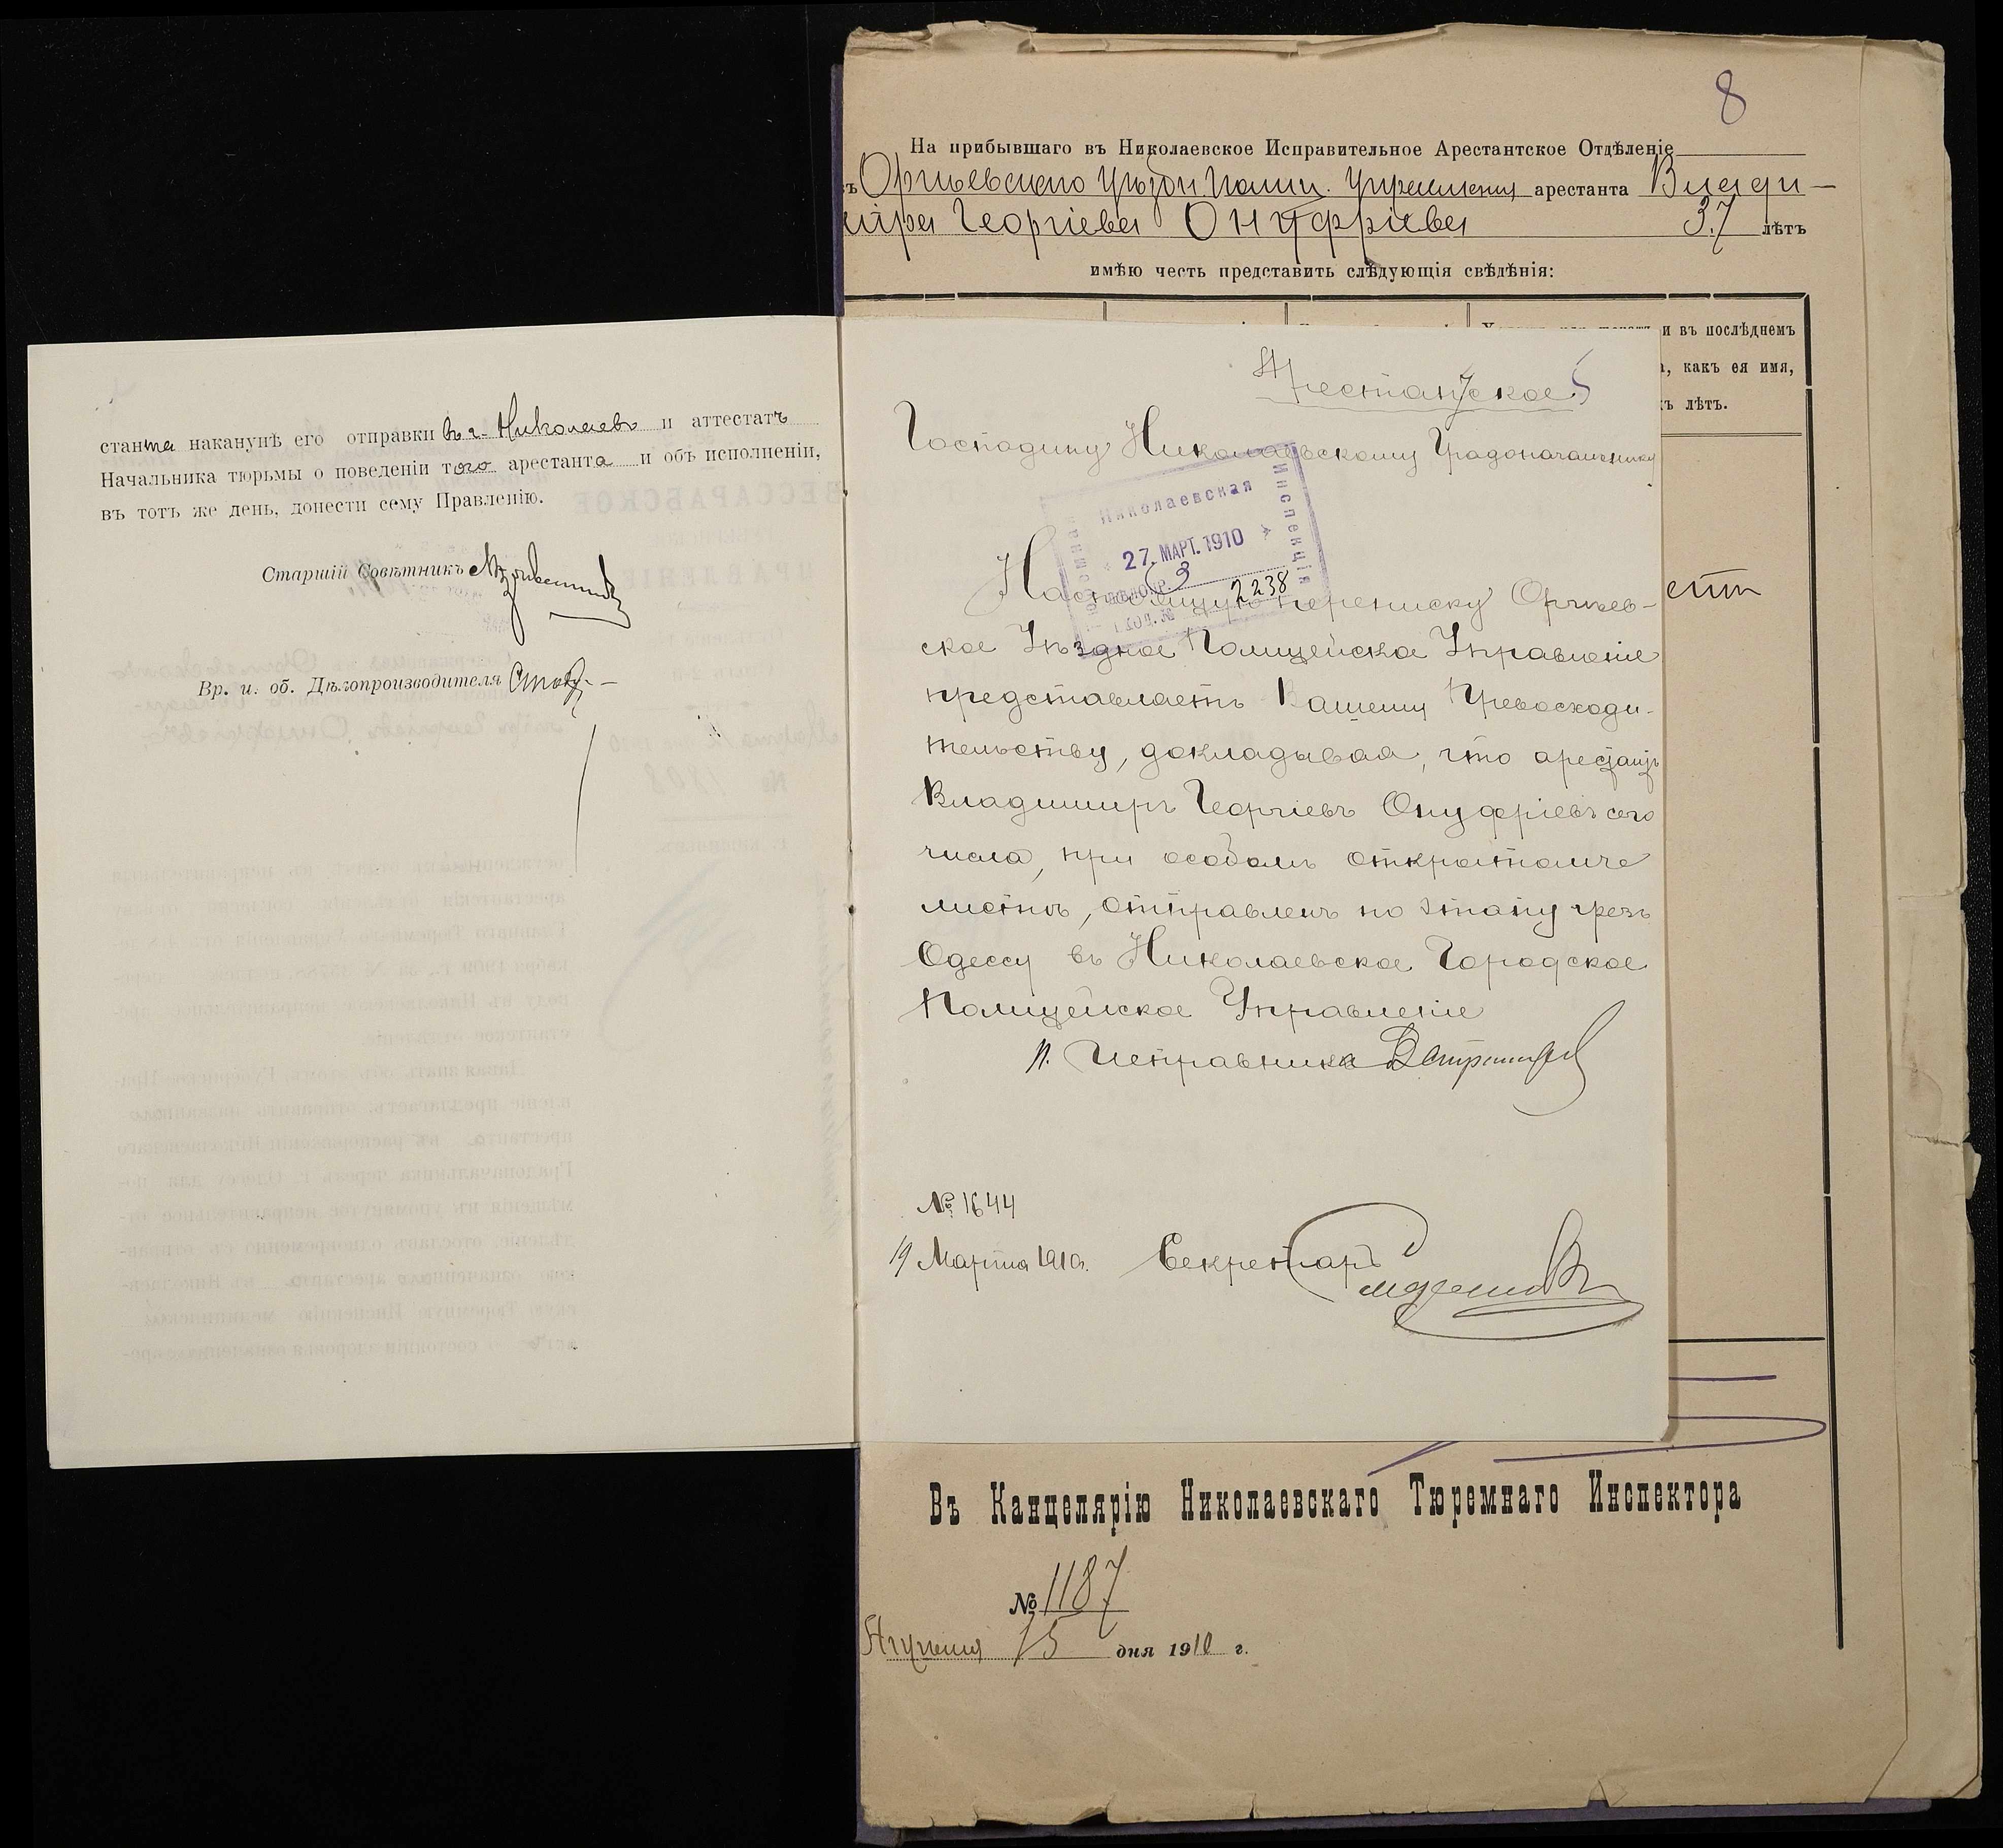 станта наканунѣ его отправки въ г. Николаевъ и аттестатъ
Начальника тюрьмы о поведеніи того арестанта и объ исполненіи,
въ тотъ же день, донести сему Правленію.
Старшій Совѣтникъ
Вр. и. об. Дѣлопроизводителя
8
На прибывшаго въ Николаевское Исправительное Арестантское Отдѣленіе
Оргѣевскаго Уѣздн Полиц. Управленія арестанта Влади-
міра Георгіева Онуфріева 37 лѣтъ
имѣю честь представить слѣдующія свѣдѣнія:
и въ послѣднемъ
какъ ея имя,
лѣтъ.
Арестантское 5
Господину Николаевскому Градоначальнику
Николаевская
Инспекція
27. МАРТ. 1910
2238
Настоящую переписку Оргѣев-
ское Уѣздное Полицейское Управленіе
представляетъ Вашему Превосходи-
тельству, докладывая, что арестантъ
Владимиръ Георгіевъ Онуфріевъ сего
числа, при особомъ открытомъ
листѣ, отправленъ по этапу чрезъ
Одессу въ Николаевское Городское
Полицейское Управленіе
И. Исправника
№ 1644
19 Марта 1910г. Секретарь
Въ Канцелярію Николаевскаго Тюремнаго Инспектора
№ 1187
15 дня 1910 г.